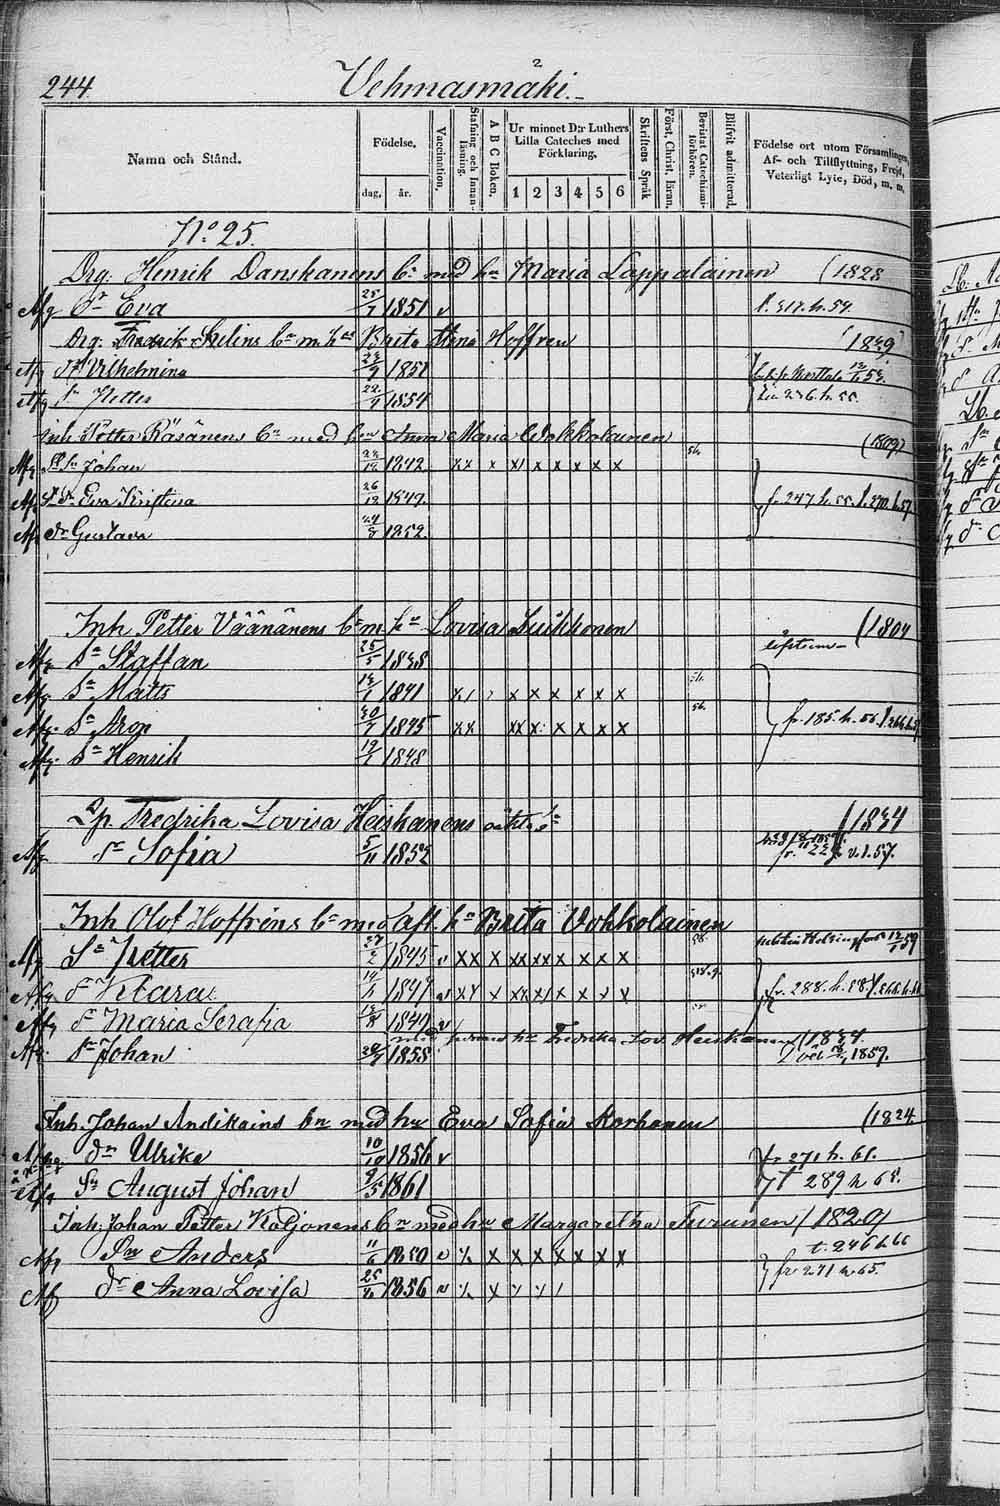 244.
Vehmasmäki.
Namn och Stånd.
Födelse.
dag.
år.
Vaccination.
Stafning och Innan-läsning.
A B C Boken.
Ur minnet D:r Luthers Lilla Cateches med Förklaring.
1 2 3 4 5 6
Skriftens Språk
Först. Christ. läran.
Bevistat Catechismi-förhören.
Blifvit admitterad.
Födelse ort utom Församlingen, Af- och Tillflyttning, Frejd, Veterligt Lyte, Död, m. m.
No 25.
Drg. Henrik Danskanens bn med hu Maria Lappalainen (1828
dr Eva 25/7 1851 v f. 317. h. 59.
Drg. Fredrik Skelins bn m. hu Brita Stina Hoffren (1829)
dr Vilhelmina 1851
Petter 22/9 1854 276. h. 55.
Inh. Petter Räsänens bn med hu Anna Maria Wokkolainen (1809)
sn Johan 1842 x x x x x x x x x 56.
dr Eva Kristina 26/12 1849. fr. 247 h. 55. f. 270. h. 57.
dr Gustava 24/8 1852.
Inh Petter Väänänens bn m hu Lovisa Luukkonen (1804
sn Staffan 25/5 1838
sn Matts 1841 x x x x x x 56.
sn Aron 30/7 1845 x x x x x x x x 56. fr. 185. h. 56.
sn Henrik 1848
Lp. Fredrika Lovisa Heiskanens oäkta (1834
dr Sofia 5/11 1852 v. 1. 57.
Inh Olof Hoffréns bn med afl. hu Brita Vokkolainen
sn Petter 27/2 1845 v x x x x x x x x x 58. Helsingfors 59
dr Klara 1847 v x x x x x x x x x fr. 288. h. 58
dr Maria Serafia 1849 v
med hu Fredrika Lov. Heiskanen (1834.
sn Johan 1858. 1859.
Inh. Johan Andikains bn med hu Eva Sofia Korhonen (1824.
dr Ulrika 10/10 1856 v fr 271 h. 61.
sn August Johan 9/5 1861 t 289 h 65.
Inh. Johan Petter Koljonens bn med hu Margaretha Turunen (1829)
sn Anders 11/6 1850 v x x x x x x x x t. 246 h 66
dr Anna Lovisa 1856 v x fr 271 h 65.